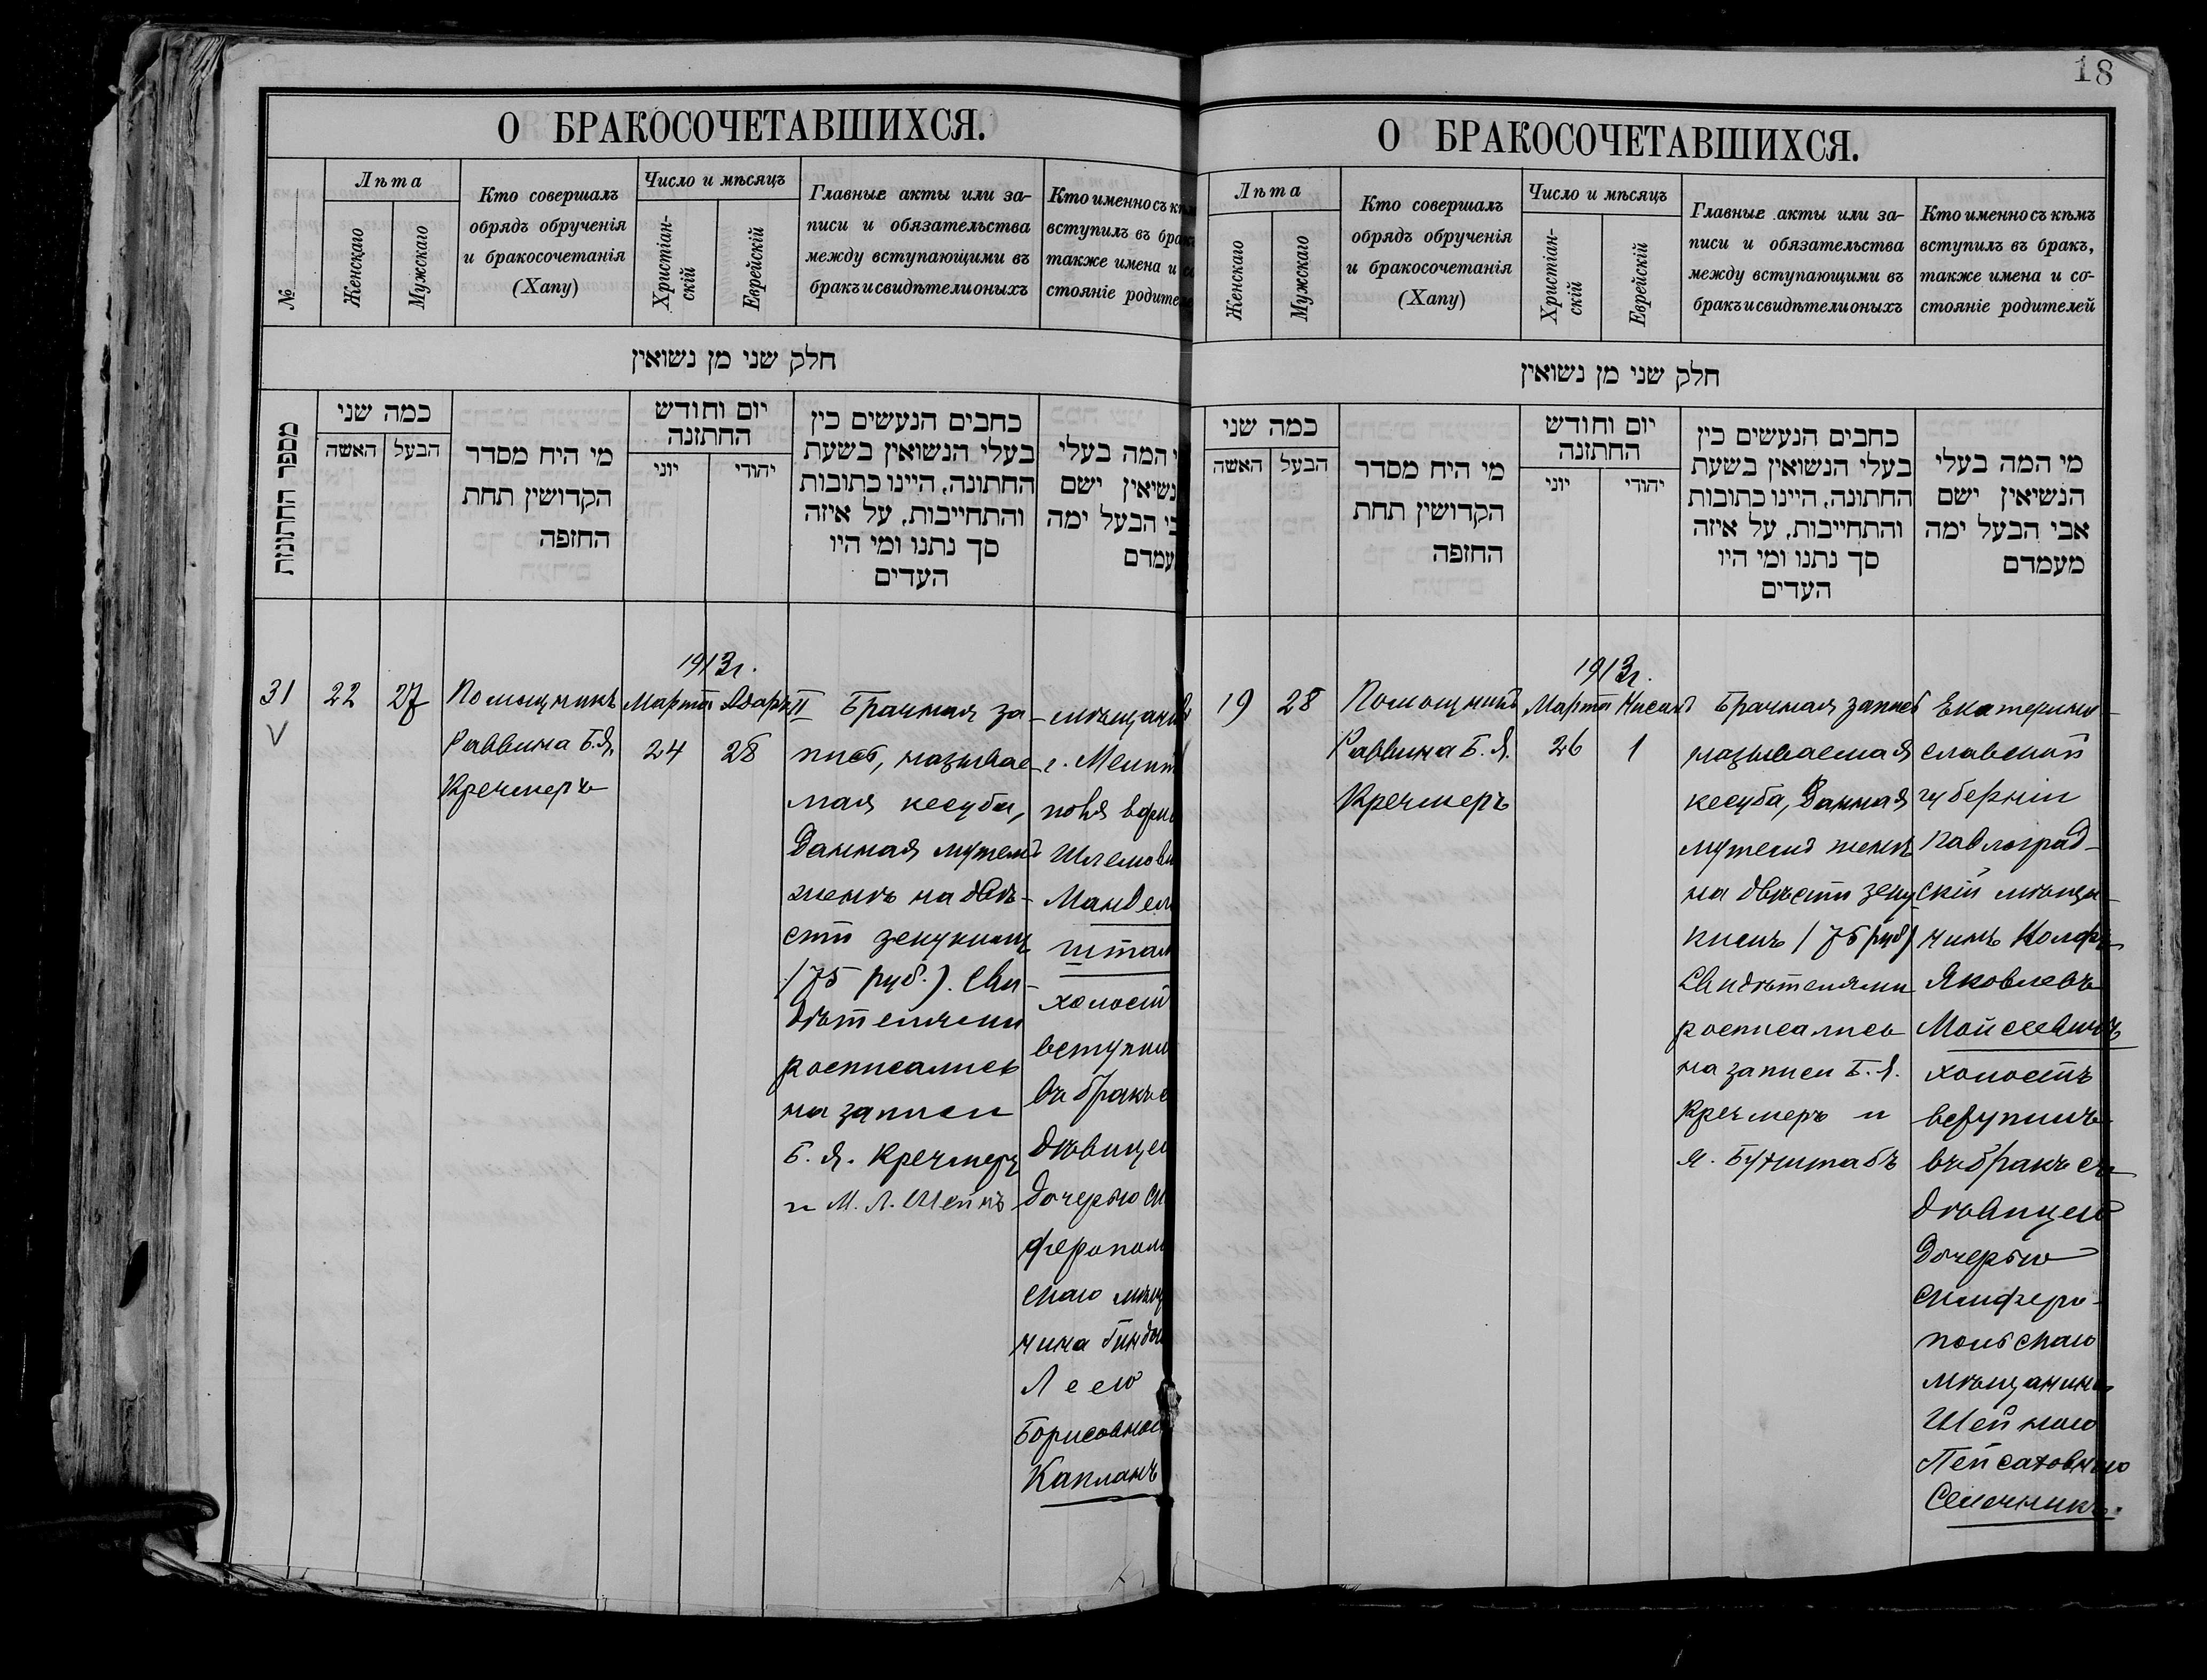 18
О БРАКОСОЧЕТАВШИХСЯ.
№
Лѣта
Женскаго
Мужскаго
Кто совершалъ
обрядъ обрученія
и бракосочетанія
(Хапу)
Число и мѣсяцъ
Христіан-
скій
Еврейскій
Главные акты или за-
писи и обязательства
между вступающими въ
бракъ и свидѣтели оныхъ
Кто именно съ кѣмъ
вступилъ въ бракъ
также имена и со
стояніе родителе
חלק שני מן נשואין
מספר החתונות
כמה שני
האשה
הבעל
מי היח מסדר
הקדושין תחת
החופה
יום וחודש
החתונה
יוני
יהודי
כתבים הנעשים בין
בעלי הנשואין בשעת
החתונה, היינו כתובות
והתחייבות, על איזה
סך נתנו ומי היו
העדים
י המה בעלי
נשיאין ישם
בי הבעל ימה
עמדם
1913 г.
31
22
27
Помощникъ
Раввина Б.Я.
Кречмеръ
Марта
24
Адаръ II
28
Брачная за-
пись, называе-
мая кесуба,
данная мужемъ
женѣ на двѣ-
сти зекукимъ
(75 руб.). Сви-
дѣтелями
росписались
на записи
Б. Я. Кречмеръ
и М. Л. Шейнъ
мѣщанинъ
г. Мелит
поля
Шлемови
Мандель
штам
холост
вступил
въ бракъ с
дѣвицею
дочерью Си
ферополь
скаго мѣщ
нина
Леею
Борисовною
Капланъ
О БРАКОСОЧЕТАВШИХСЯ.
Лѣта
Женскаго
Мужскаго
Кто совершалъ
обрядъ обрученія
и бракосочетанія
(Хапу)
Число и мѣсяцъ
Христіан-
скій
Еврейскій
Главные акты или за-
писи и обязательства
между вступающими въ
бракъ и свидѣтели оныхъ
Кто именно съ кѣмъ
вступилъ въ бракъ,
также имена и со-
стояніе родителей
חלק שני מן נשואין
כמה שני
האשה
הבעל
מי היח מסדר
הקדושין תחת
החופה
יום וחודש
החתונה
יוני
יהודי
כתבים הנעשים בין
בעלי הנשואין בשעת
החתונה, היינו כתובות
והתחייבות, על איזה
סך נתנו ומי היו
העדים
מי המה בעלי
הנשיאין ישם
אבי הבעל ימה
מעמדם
1913 г.
19
28
Помощникъ
Раввина Б. Я.
Кречмеръ
Марта
26
Нисанъ
1
Брачная запись
называемая
кесуба, данная
мужемъ женѣ
на двѣсти зеку
кимъ (75 руб)
Свидѣтелями
росписались
на записи Б. Я.
Кречмеръ и
Я. Бухштабъ
Екатерино-
славской
губерніи
Павлоград-
скій мѣща-
нинъ
Яковлевъ
Мойсеевичъ
холостъ
вступилъ
въ бракъ съ
дѣвицею
дочерью
Симферо-
польскаго
мѣщанина
Шейною
Пейсаховною
Селечникъ.